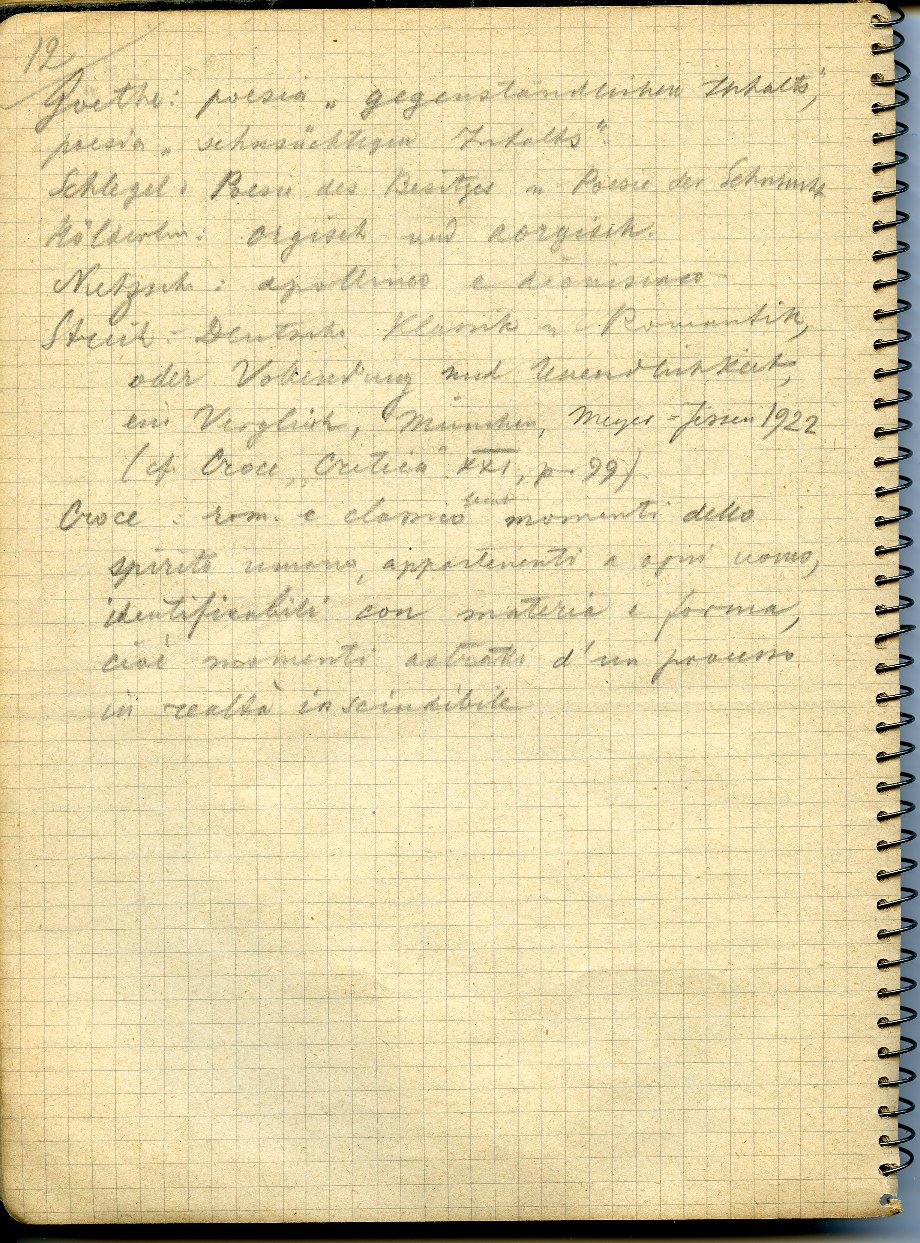 12
Goethe: poesia „gegenständlichen Inhalts",
poesia „sehnsüchtigen Inhalts".
Schlegel: Poesie des Besitzes u Poesie der Sehnsucht
Hölderlin: orgisch und aorgisch.
Nietzsch: apollineo e dionisiaco
Strich: Deutsche Klassik u Romantik,
oder Vollendung und Unendlichkeit,
ein Vergleich, München, Meyer=Jessen 1922
(cf. Croce „Critica" XXI, p. 99)
Croce: rom. e classico momenti dello
spirito umano, appartenenti a ogni uomo,
identificabili con materia e forma,
cioè momenti astratti d'un processo
in realtà inscindibile